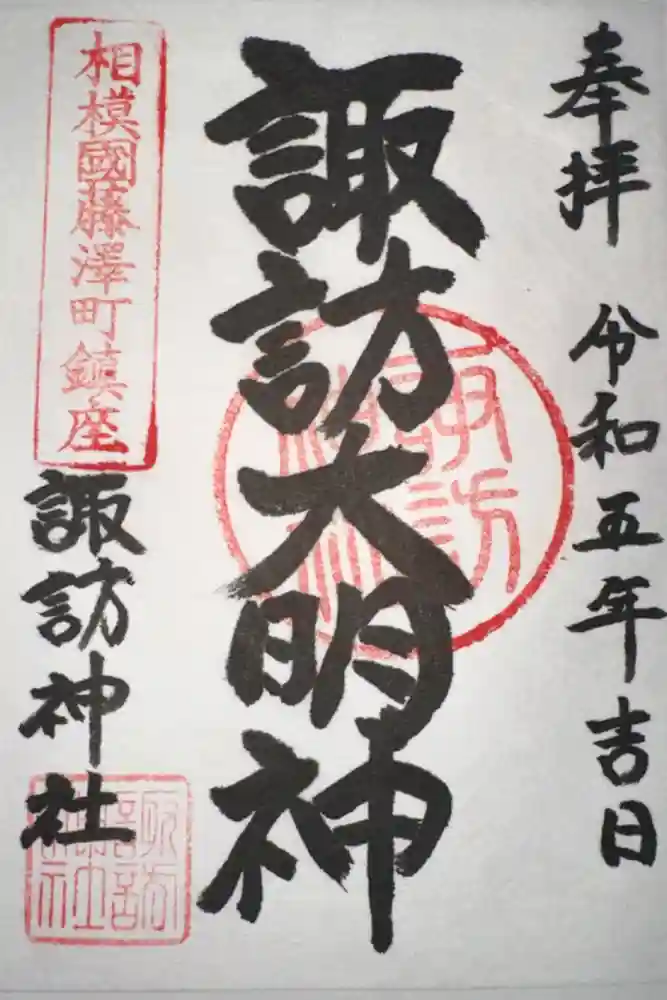 奉拝 令和五年吉日
諏訪大明神
諏訪神社
相模國藤澤町鎮座
諏訪神社